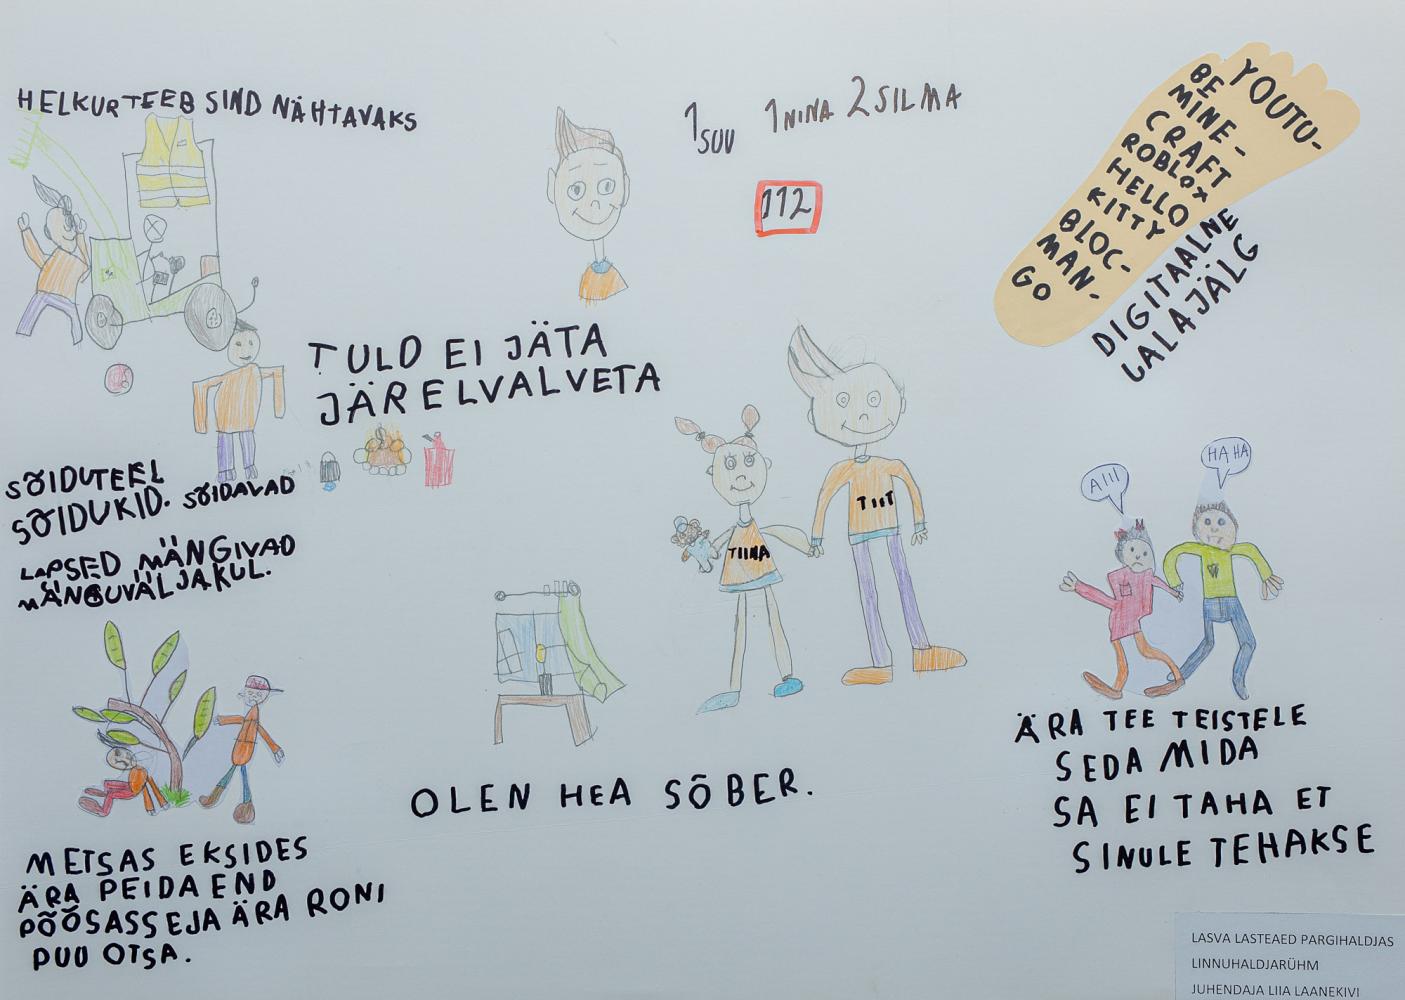 HELKUR TEEB SIND NÄHTAVAKS
1 SUU 1 NINA 2 SILMA
112
YOUTU-
BE
MINE-
CRAFT
ROBLOX
HELLO
KITTY
BLOC-
MAN-
GO
DIGITAALNE
JALAJÄLG
TULD EI JÄTA
JÄRELVALVETA
SÕIDUTEEL
SÕIDUKID. SÕIDAVAD
LAPSED MÄNGIVAD
MÄNGUVÄLJAKUL.
TIINA
TIIT
AIII
HA HA
OLEN HEA SÕBER.
ÄRA TEE TEISTELE
SEDA MIDA
SA EI TAHA ET
SINULE TEHAKSE
METSAS EKSIDES
ÄRA PEIDA END
PÕÕSASSEJA ÄRA RONI
PUU OTSA.
LASVA LASTEAED PARGIHALDJAS
LINNUHALDJARÜHM
JUHENDAJA LIIA LAANEKIVI